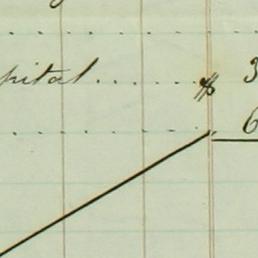 pital.... $ 3
6